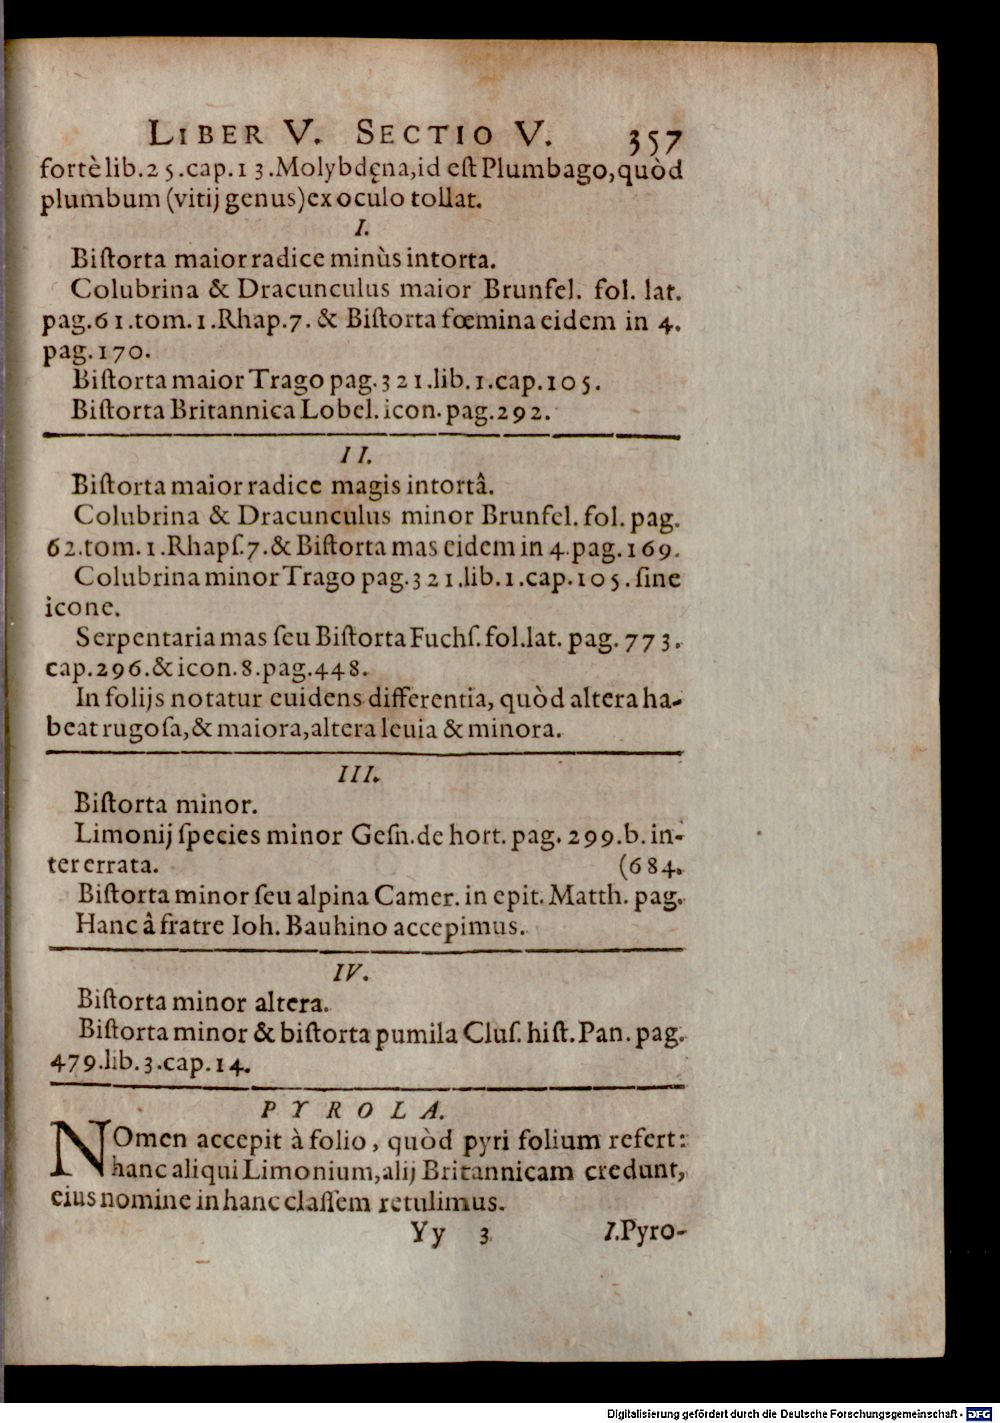 LIBER V. SECTIO V. 357
fortè lib.25.cap.13.Molybdęna,id eſt Plumbago,quòd
plumbum (vitij genus)ex oculo tollat.
I.
Biſtorta maior radice minùs intorta.
Colubrina & Dracunculus maior Brunfel. fol. lat.
pag.61.tom.1.Rhap.7. & Biſtorta fœmina eidem in 4.
pag.170.
Biſtorta maior Trago pag.321.lib.1.cap.105.
Biſtorta Britannica Lobel.icon.pag.292.
II.
Biſtorta maior radice magis intortâ.
Colubrina & Dracunculus minor Brunfel.fol.pag.
62.tom.1.Rhapſ.7.& Biſtorta mas eidem in 4.pag.169.
Colubrina minor Trago pag.321.lib.1.cap.105.ſine
icone.
Serpentaria mas ſeu Biſtorta Fuchſ.fol.lat. pag.773.
cap.296.& icon.8.pag.448.
In folijs notatur euidens differentia, quòd altera ha-
beat rugoſa,& maiora,altera leuia & minora.
III.
Biſtorta minor.
Limonij ſpecies minor Geſn.de hort. pag. 299.b. in-
ter errata. (684.
Biſtorta minor ſeu alpina Camer. in epit. Matth. pag.
Hanc â fratre Ioh. Bauhino accepimus.
IV.
Biſtorta minor altera.
Biſtorta minor & biſtorta pumila Cluſ. hiſt. Pan. pag.
479.lib.3.cap.14.
PYROLA.
NOmen accepit à folio, quòd pyri folium refert:
hanc aliqui Limonium,alij Britannicam credunt,
eius nomine in hanc claſſem retulimus.
Yy 3 I.Pyro-
Digitalisierung gefördert durch die Deutsche Forschungsgemeinschaft - DFG